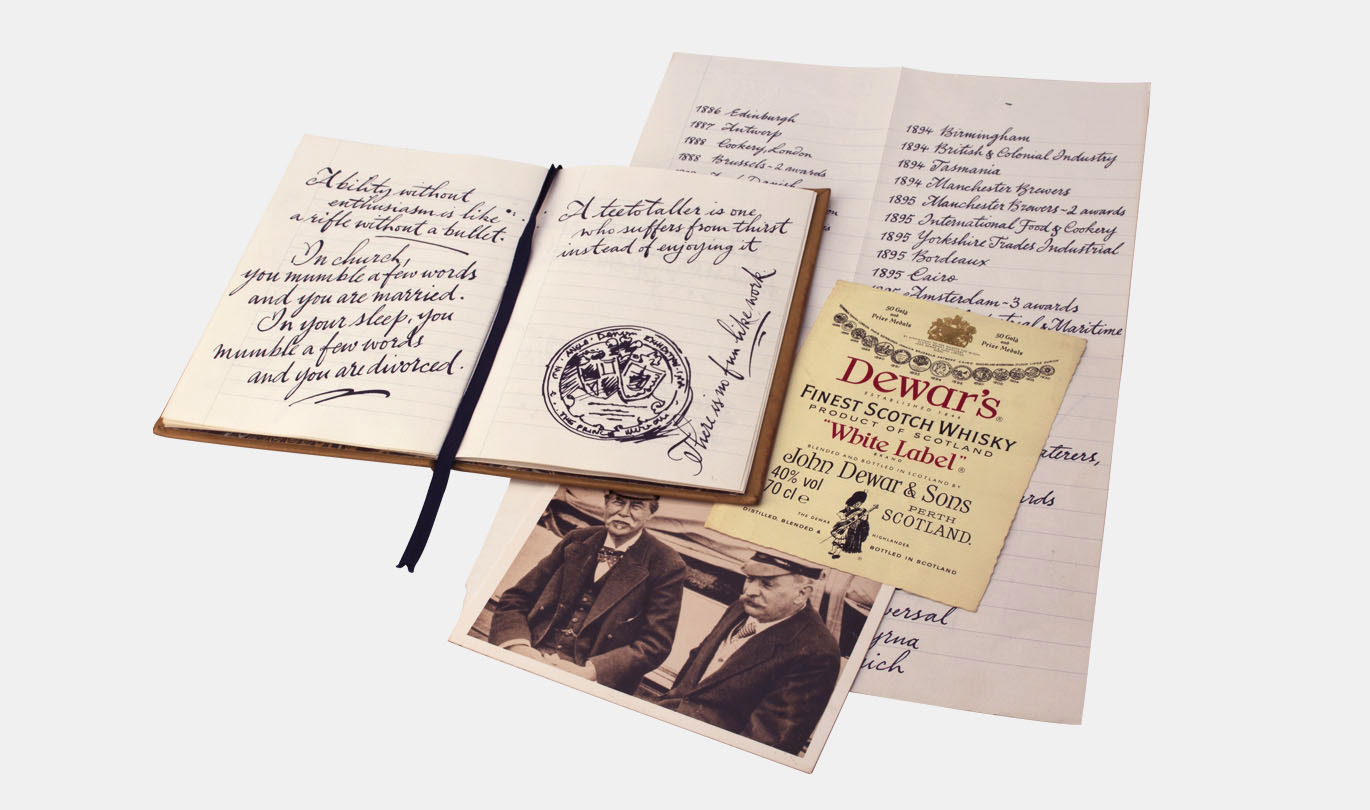 Ability without
enthusiasm is like
a rifle without a bullet.
In church,
you mumble a few words
and you are married.
In your sleep, you
mumble a few words
and you are divorced.
A teetotaller is one
who suffers from thirst
instead of enjoying it
There is no fun like work
THE PRINCE
1886 Edinburgh
1887 Antwerp
1888 Cookery, London
1888 Brussels - 2 awards
Danish
1894 Birmingham
1894 British & Colonial Industry
1894 Tasmania
1894 Manchester Brewers
1895 Manchester Brewers - 2 awards
1895 International Food & Cookery
1895 Yorkshire Trades Industrial
1895 Bordeaux
1895 Cairo
Amsterdam - 3 awards
& Maritime
aterers,
rds
versal
yrna
ich
50 Gold
and
Prize Medals
50 Gold
and
Prize Medals
Dewar's®
ESTABLISHED 1846
FINEST SCOTCH WHISKY
PRODUCT OF SCOTLAND
"White Label"®
BRAND
BLENDED AND BOTTLED IN SCOTLAND BY
John Dewar & Sons
40% vol
70 cl e
PERTH
SCOTLAND.
THE DEWAR HIGHLANDER
DISTILLED, BLENDED & BOTTLED IN SCOTLAND